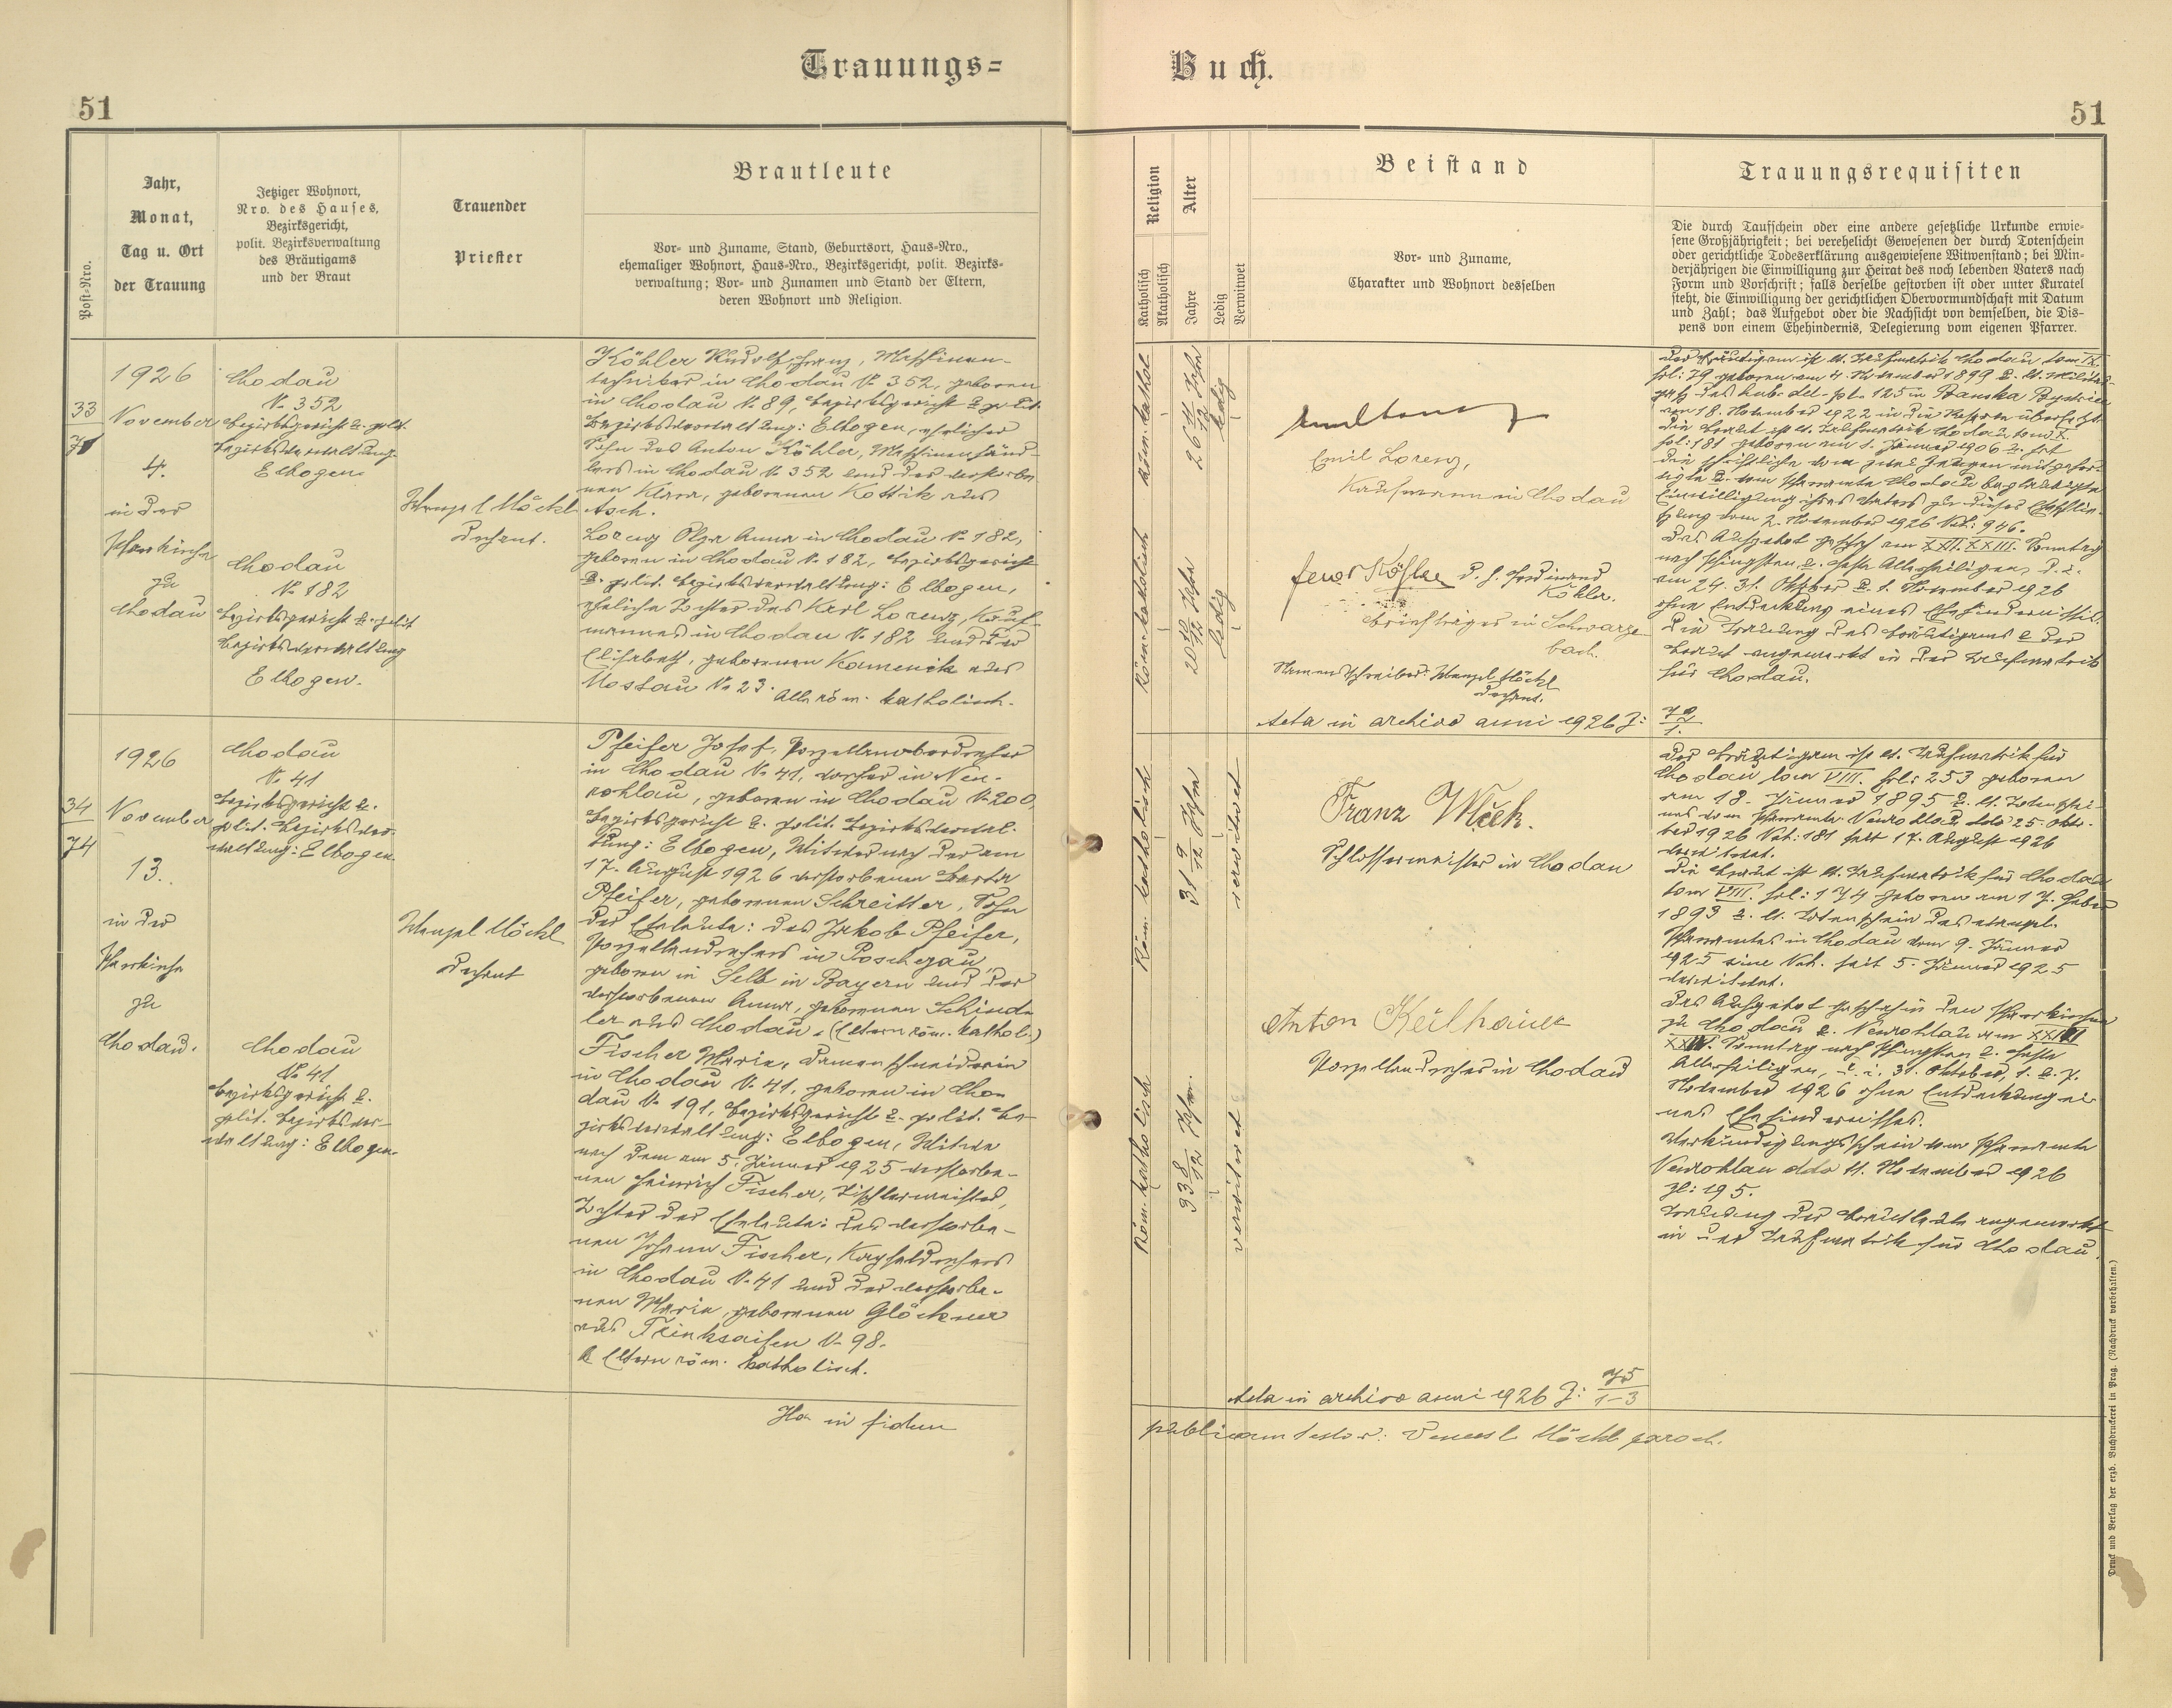 Trauungs=
Buch.
51
51
Post=Nro.
Jahr,
Monat,
Tag u. Ort
der Trauung
Jetziger Wohnort,
Nro. des Hauses,
Bezirksgericht,
polit. Bezirksverwaltung
des Bräutigams
und der Braut
Trauender
Priester
Brautleute
Vor= und Zuname, Stand, Geburtsort, Haus=Nro.,
ehemaliger Wohnort, Haus=Nro., Bezirksgericht, polit. Bezirks=
verwaltung; Vor= und Zunamen und Stand der Eltern,
deren Wohnort und Religion.
Religion
Katholisch
Akatholisch
Alter
Jahre
Ledig
Verwitwet
Beistand
Vor= und Zuname,
Charakter und Wohnort desselben
Trauungsrequisiten
Die durch Taufschein oder eine andere gesetzliche Urkunde erwie=
sene Großjährigkeit; bei verehelicht Gewesenen der durch Totenschein
oder gerichtliche Todeserklärung ausgewiesene Witwenstand; bei Min=
derjährigen die Einwilligung zur Heirat des noch lebenden Vaters nach
Form und Vorschrift; falls derselbe gestorben ist oder unter Kuratel
steht, die Einwilligung der gerichtlichen Obervormundschaft mit Datum
und Zahl; das Aufgebot oder die Nachsicht von demselben, die Dis=
pens von einem Ehehindernis, Delegierung vom eigenen Pfarrer.
33
1926
November
4.
in der
Pfarrkirche
zu
Chodau
Chodau
N. 352
Bezirksgericht u. polit.
Bezirksverwaltung
Elbogen.
Chodau
N. 182
Bezirksgericht u. polit
Bezirksverwaltung
Elbogen.
Wenzel Möckl
Dechant.
Köhler Rudolf Franz, Maschinen-
techniker in Chodau N. 352, geboren
in Chodau N. 89, Bezirksgericht u. polit.
Bezirksverwaltung: Elbogen, ehelicher
Sohn des Anton Köhler, Maschinenhänd-
lers in Chodau N. 352 und der verstorbe
nen Klara, geborenen Kottik aus
Asch.
Lorenz Olga Anna in Chodau N. 182,
geboren in Chodau N. 182, Bezirksgericht
u. polit. Bezirksverwaltung: Elbogen,
eheliche Tochter des Karl Lorenz, Kauf-
mannes in Chodau N. 182 und der
Elisabeth, geborenen Kamenik aus
Mostau N. 23. Alle röm. katholisch.
Röm. kathol
26 11/12 Jahre
ledig
Röm. katholisch
20 10/12 Jahre
ledig
Emil Lorenz,
Kaufmann in Chodau
Köhler d. h. Ferdinand
Köhler.
Briefträger in Schwarzen
bach.
Namensschreiber: Wenzel Möckl
Dechant.
Acta in archivo anni 1926 J: 72/1.
Der Bräutigam ist lt. Taufmatrik Chodau tom IX.
fol: 79 geboren am 4. November 1899 u. lt. Militär-
Banska Bystrica
am 18. November 1922 in die Reserve übersetzt.
Die Braut ist lt. Taufmatrik Chodau tom X.
fol: 181 geboren am 1. Jänner 1906 u. hat
die schriftliche von zwei Zeugen mitgefer-
tigte u. vom Pfarramte Chodau beglaubigte
Einwilligung ihres Vaters zu dieser Eheschlie-
ßung vom 2. November 1926 Nch: 946.
Das Aufgebot geschah am XXII. XXIII. Sonntag
nach Pfingsten u. Feste Allerheiligen, d. i.
am 24. 31. Oktober u. 1. November 1926
ohne Entdeckung eines Ehehindernisses.
Die Trauung des Bräutigams u. der
Braut angemerkt in der Taufmatrik
für Chodau.
34
74
1926
November
13.
in der
Pfarrkirche
zu
Chodau.
Chodau
N. 41
Bezirksgericht u.
polit. Bezirksver-
waltung: Elbogen.
Chodau
N. 41
Bezirksgericht u.
polit. Bezirksver-
waltung: Elbogen.
Wenzel Möckl
Dechant
Pfeifer Josef, Porzellanoberdreher
in Chodau N. 41, vorher in Neu-
rohlau, geboren in Chodau N. 200,
Bezirksgericht u. polit. Bezirksverwal-
tung: Elbogen, Witwer nach der am
17. August 1926 verstorbenen Berta
Pfeifer, geborenen Schreitter, Sohn
der Eheleute: des Jakob Pfeifer,
Porzellandrehers in Poschegau
geboren in Selb in Bayern und der
verstorbenen Anna, geborenen Schind
ler aus Chodau. (Eltern röm. kathol.)
Fischer Maria, Damenschneiderin
in Chodau N. 41, geboren in Cho-
dau N. 191, Bezirksgericht u. polit. Be-
zirksverwaltung: Elbogen, Witwe
nach dem am 5. Jänner 1925 verstorbe-
nen Heinrich Fischer, Tischlermeister,
Tochter der Eheleute: des verstorbe-
nen Johann Fischer, Kapseldrehers
in Chodau N. 41 und der verstorbe-
nen Maria, geborenen Glöckner
aus Trinksaifen N. 98.
Eltern röm. katholisch.
Röm. katholisch
31 9/12 Jahre
verwitwet
Röm. katholisch
33 8/12 Jahre.
verwitwet
Franz Wlček.
Schlossermeister in Chodau
Anton Keilhauer
Porzellandreher in Chodau
Acta in archivo anni 1926 J: 75/1-3
Der Bräutigam ist lt. Taufmatrik für
Chodau tom VIII. fol: 253 geboren
am 18. Jänner 1895 u. lt. Totenschei-
nes vom Pfarramte Neurohlau ddo 25. Okto-
ber 1926 Nch: 181 seit 17. August 1926
verwitwet.
Die Braut ist lt. Taufmatrik für Chodau
tom VIII. fol: 174 geboren am 17. Feber
1893 u. lt. Totenschein des evangel.
Pfarramtes in Chodau vom 9. Jänner
1925 sine Nch. seit 5. Jänner 1925
verwitwet.
Das Aufgebot geschah in den Pfarrkirchen
zu Chodau u. Neurohlau am
Sonntag nach Pfingsten u. Feste
Allerheiligen, d. i. 31. Oktober, 1. u. 7.
November 1926 ohne Entdeckung ei-
nes Ehehindernisses.
Verkündigungsschein vom Pfarramte
Neurohlau ddo 11. November 1926
Zl: 195.
Trauung der Brautleute angemerkt
in der Taufmatrik für Chodau.
Ita in fidem
publicam testor: Vencesl. Möckl paroch.
Druck und Verlag der erzb. Buchdruckerei in Prag. (Nachdruck vorbehalten.)